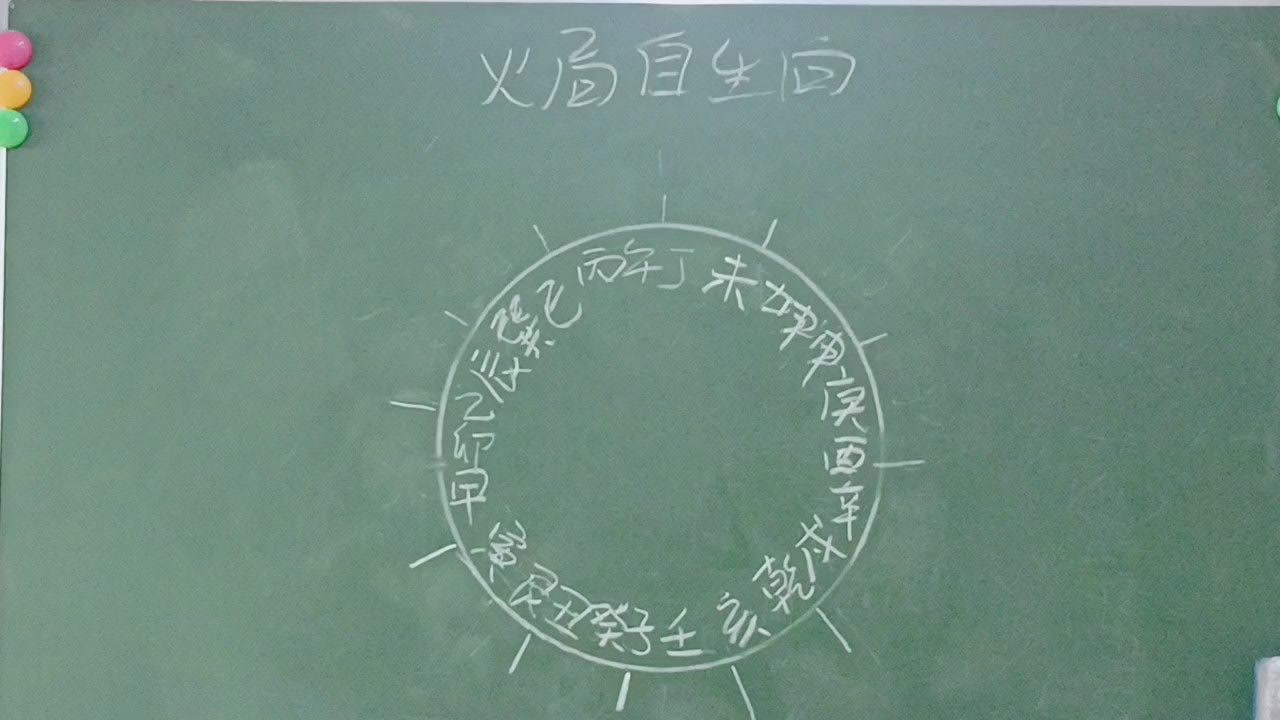 火局自生向
丙午丁未坤申庚酉辛戌乾亥壬子癸丑艮寅甲卯乙辰巽巳